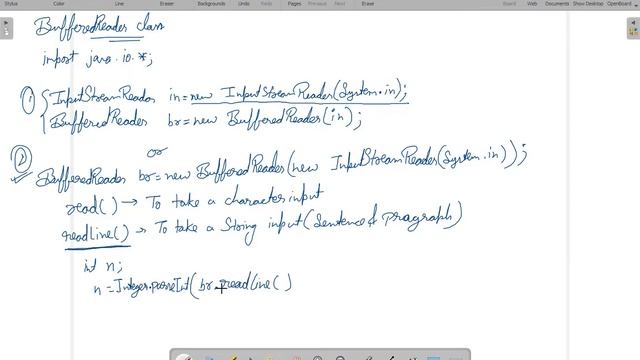 Stylus Color Line Eraser Backgrounds Undo Pages Previous Next Erase Delete Screen Web Documents Show Desktop OpenBoard
BufferedReader class
import java.io.*;
① InputStreamReader in=new InputStreamReader(System.in);
BufferedReader br=new BufferedReader(in);
or
② BufferedReader br=new BufferedReader(new InputStreamReader(System.in));
read() → To take a character input
readLine() → To take a String input (Sentence & paragraph)
int n;
n=Integer.parseInt(br.readLine()